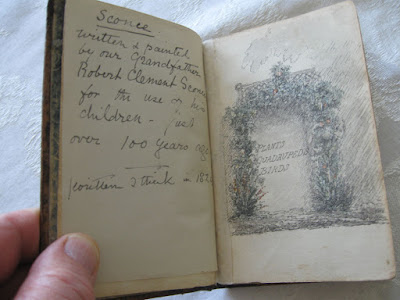 Sconce
written & painted
by our Grandfather
Robert Clement Sconce
for the use of his
children – just
over 100 years ago
written I think in 182
PLANTS
QUADRUPEDS
BIRDS